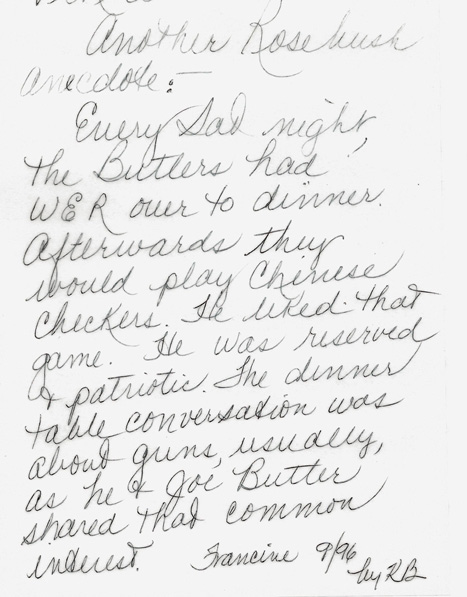 Another Rosebush
Anecdote:—
Every Sat night,
the Butlers had
WER over to dinner.
Afterwards they
would play Chinese
Checkers. He liked that
game. He was reserved
& patriotic. The dinner
table conversation was
about guns, usually,
as he & Joe Butler
shared that common
interest. Francine 9/96
by KB